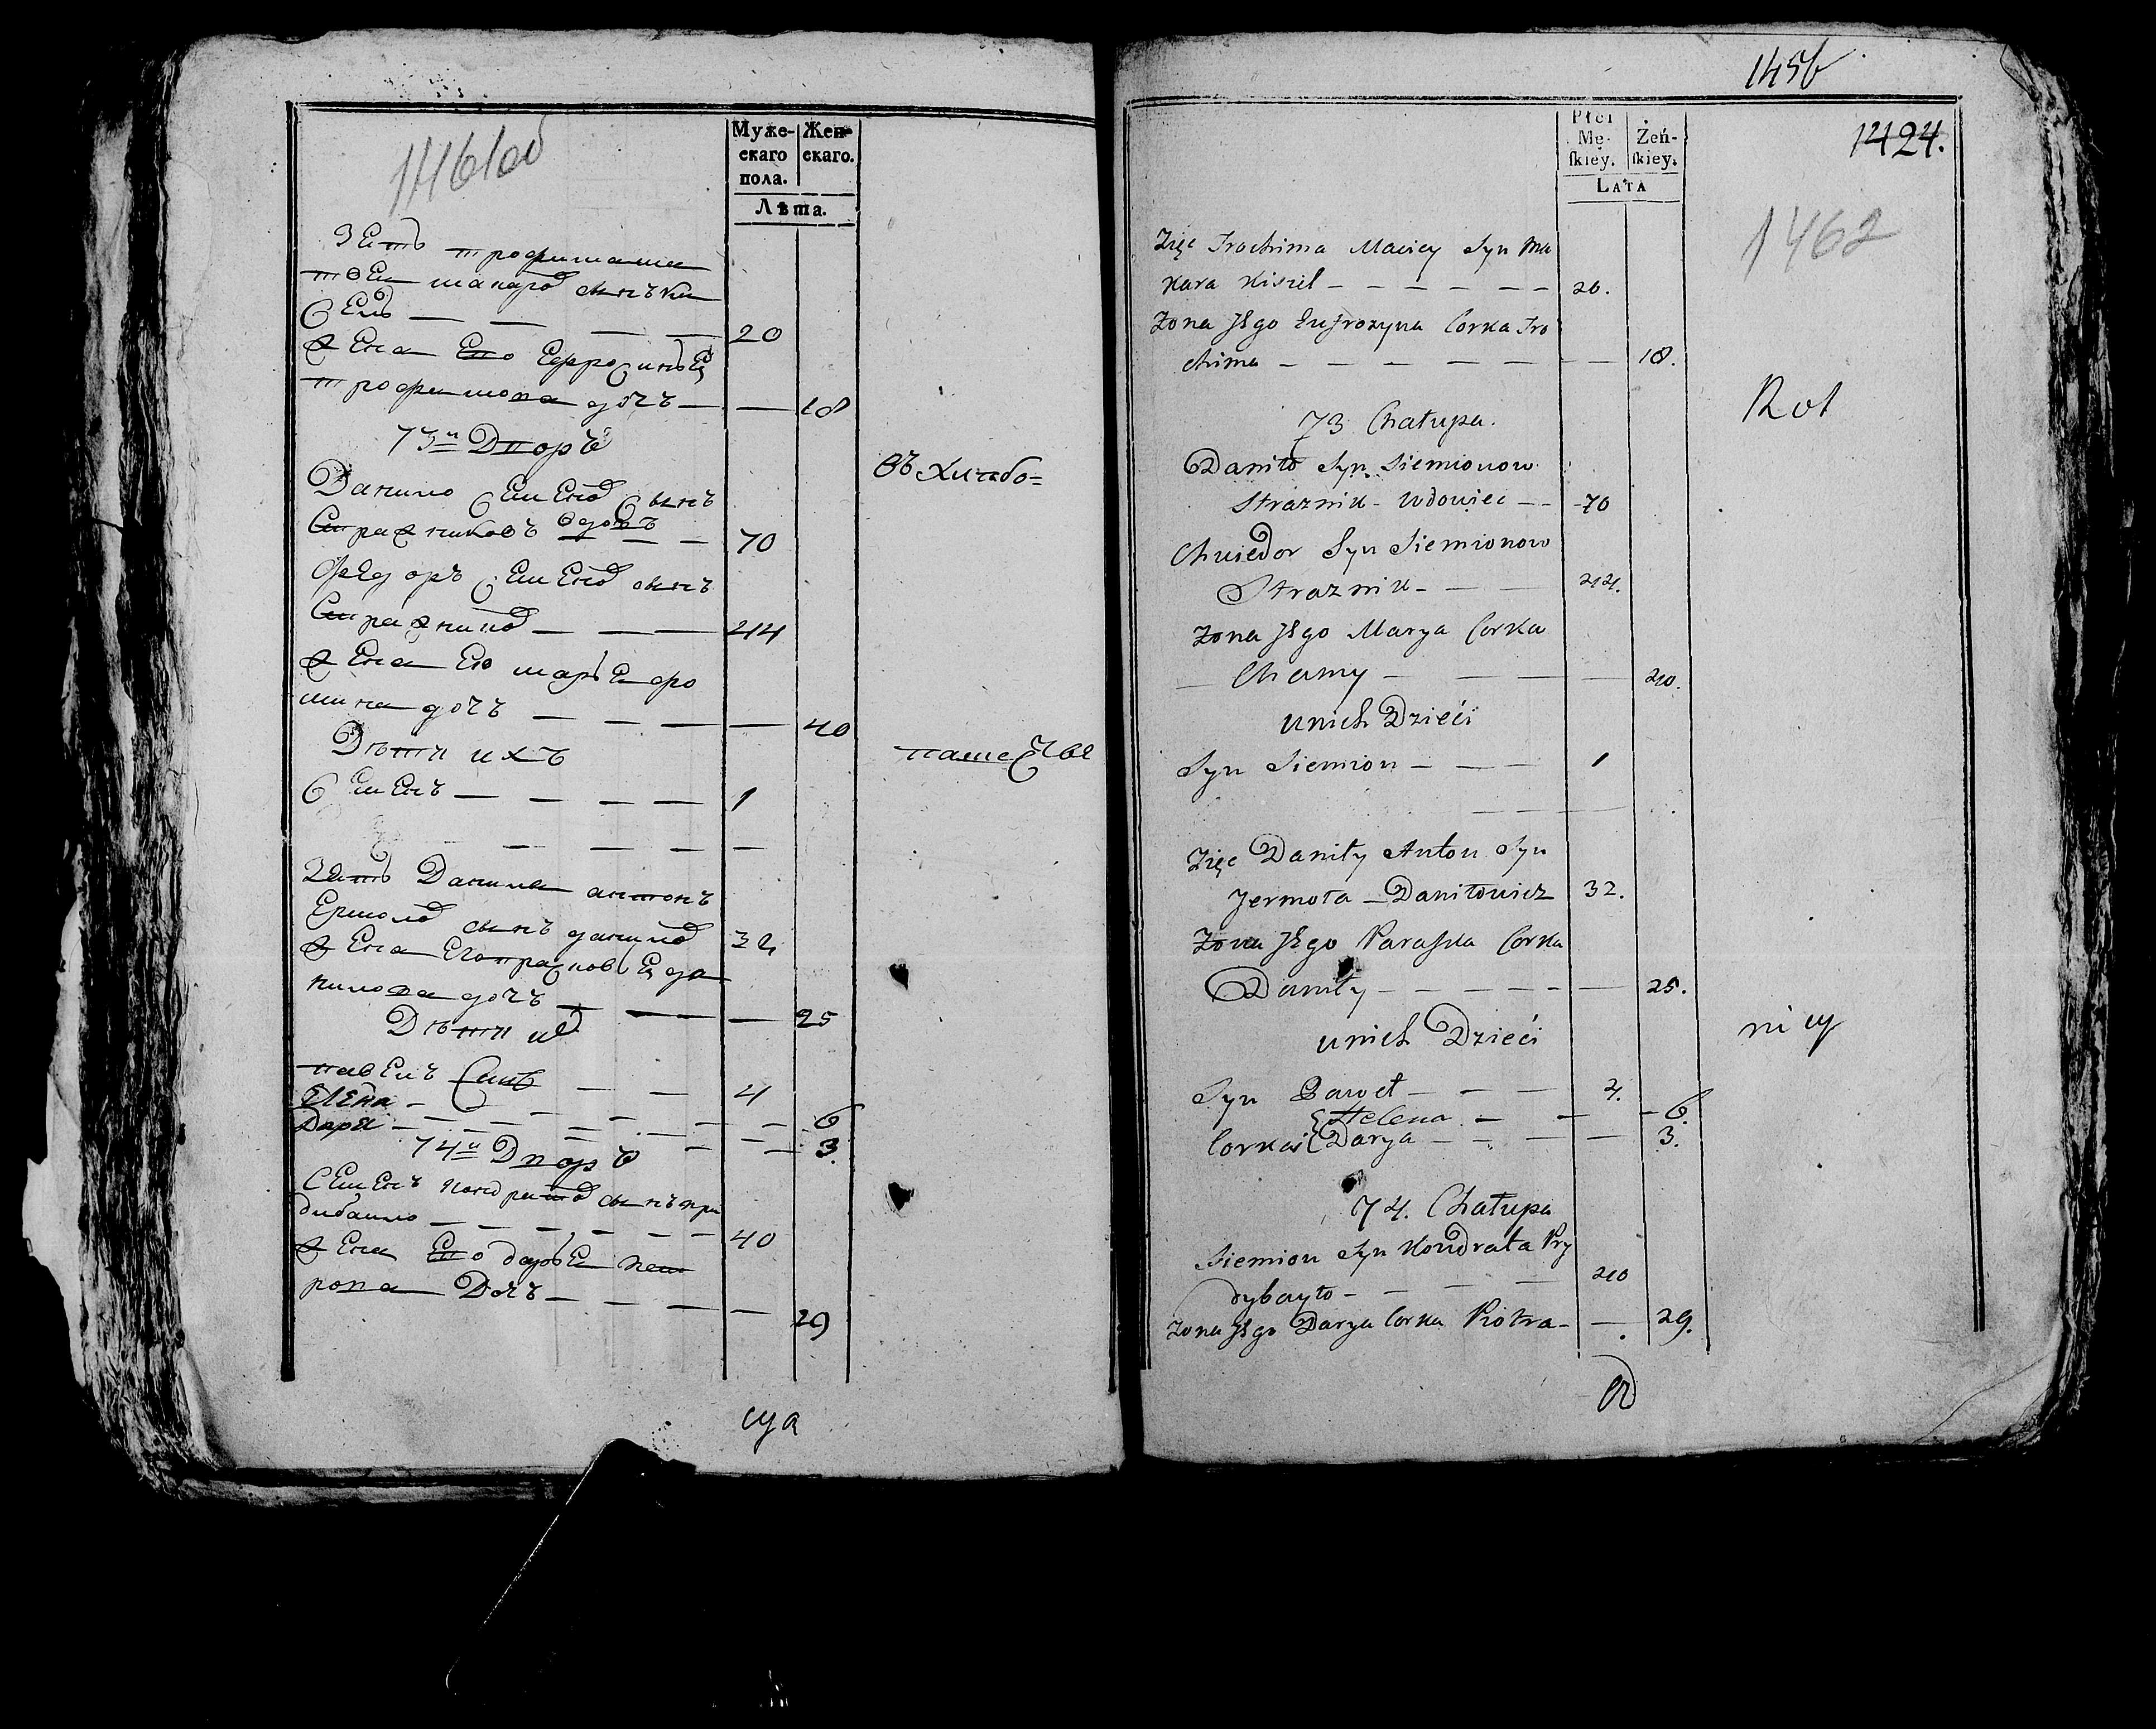 1461об
Муже-
скаго
пола.
Жен-
скаго.
Лѣта.
Зеть трофима ма
твеи макаров сынъ ки
сель — — — — 20
жена его ефросинья
трофимова дочь — — 18
73й Дворъ
Данило Семенов Сынъ
Стражниковъ вдовъ — — 70
Федоръ Семенов сынъ
Стражников — — — 44
жена его марья фо
мина дочъ — — — — 40
Дѣти ихъ
Семенъ — — — — 1
— — — — —
Зеть Данила антонъ
Ермолов сынъ данилов 32
жена его прасковья да
нилова дочъ — — — 25
Дѣти их
павелъ Сынъ — — 4
Елена — — — — — 6
Дарья — — — — — 3.
74й Дворъ
Семенъ кондратов сынъ при
дибаило — — — — — 40
жена его дарья пет
рова Дочъ — — — — 29
въ хлебо=
пашестве
суд
1456
1424.
1462
Płci
Mę-
ſkiey.
Żeń-
ſkiey.
LATA
Zięc Trochima Maciey Syn Ma
kara Kisiel — — — — — — 20.
Zona Jego Eufrozyna Corka Tro
chima — — — — — — — 18.
73 Chałupa.
Daniło Syn Siemionow
Straznik - Wdowiec — - 70
Chwiedor Syn Siemionow
Straznik - — — 44.
Zona Jego Marya Corka
— Chomy — — — — — 40.
unich Dzieći
Syn Siemion — — — 1
— — — —
Zięc Daniły Anton Syn
Jermoła — Daniłowicz 32.
Zona Jego Paraska Corka
Daniły — — — — — — 25.
unich Dzieći
Syn Paweł — — — 4.
Helena — — — 6.
Corkai Darya — — — — — 3.
74. Chałupa
Siemion Syn Kondrata Pry
dybayło — — — — 40
Zona Jego Darya Corka Piotra — — 29.
Rol
nicy